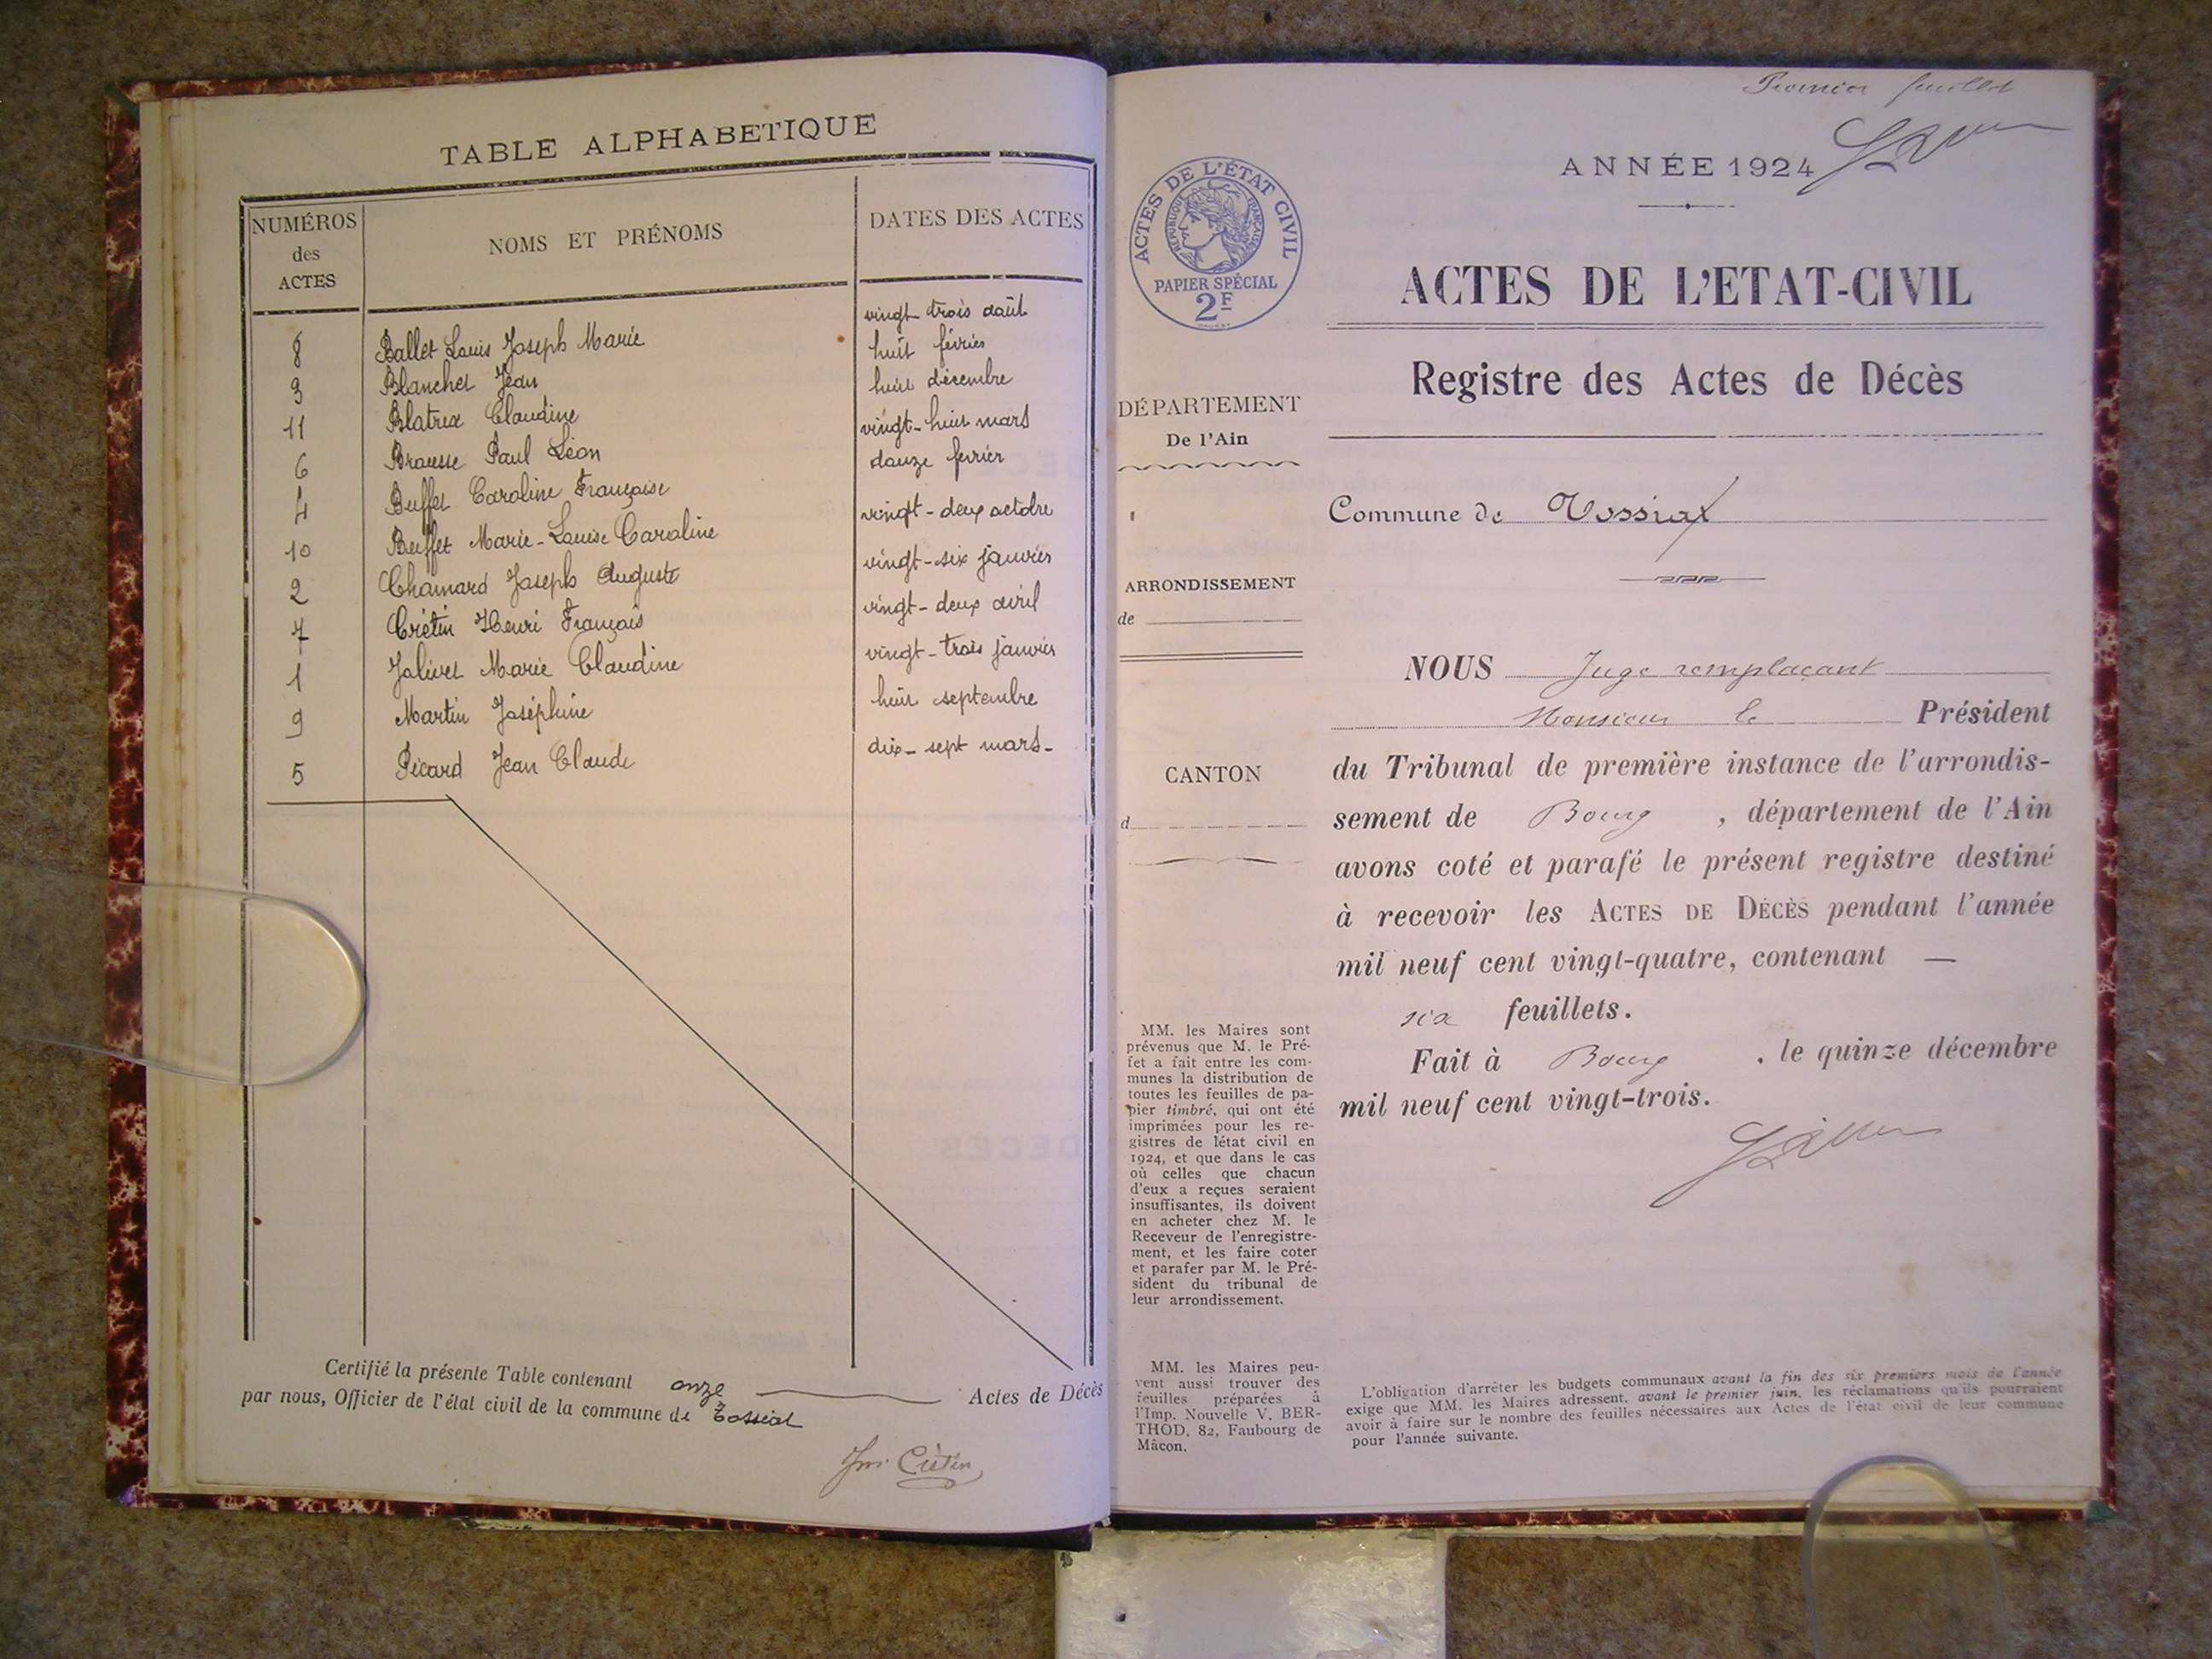 TABLE ALPHABETIQUE
NUMÉROS
des
ACTES
NOMS ET PRÉNOMS
DATES DES ACTES
8 Ballet Louis Joseph Marie vingt trois août
3 Blanchet Jean huit février
11 Blatrix Claudine huit décembre
6 Brausse Paul Léon vingt-huit mars
4 Buffet Caroline Françoise douze février
10 Buffet Marie-Louise Caroline vingt-deux octobre
2 Chamard Joseph Auguste vingt-six janvier
7 Crétin Henri François vingt-deux avril
1 Jolivet Marie Claudine vingt-trois janvier
9 Martin Joséphine huit septembre
5 Picard Jean Claude dix-sept mars-
Certifié la présente Table contenant onze Actes de Décès
par nous, Officier de l'état civil de la commune de Tossiat
Crétin
Premier feuillet
ANNÉE 1924
ACTES DE L'ÉTAT CIVIL
RÉPUBLIQUE FRANÇAISE
PAPIER SPÉCIAL
2F
ACTES DE L'ETAT-CIVIL
Registre des Actes de Décès
DÉPARTEMENT
De l'Ain
Commune de Tossiat
ARRONDISSEMENT
de
CANTON
d
NOUS Juge remplaçant
Monsieur le Président
du Tribunal de première instance de l'arrondis-
sement de Bourg , département de l'Ain
avons coté et parafé le présent registre destiné
à recevoir les ACTES DE DÉCÈS pendant l'année
mil neuf cent vingt-quatre, contenant —
six feuillets.
Fait à Bourg , le quinze décembre
mil neuf cent vingt-trois.
MM. les Maires sont
prévenus que M. le Pré-
fet a fait entre les com-
munes la distribution de
toutes les feuilles de pa-
pier timbré, qui ont été
imprimées pour les re-
gistres de létat civil en
1924, et que dans le cas
où celles que chacun
d'eux a reçues seraient
insuffisantes, ils doivent
en acheter chez M. le
Receveur de l'enregistre-
ment, et les faire coter
et parafer par M. le Pré-
sident du tribunal de
leur arrondissement.
MM. les Maires peu-
vent aussi trouver des
feuilles préparées à
l'Imp. Nouvelle V. BER-
THOD, 82, Faubourg de
Mâcon.
L'obligation d'arrêter les budgets communaux avant la fin des six premiers mois de l'année
exige que MM. les Maires adressent, avant le premier juin, les réclamations qu'ils pourraient
avoir à faire sur le nombre des feuilles nécessaires aux Actes de l'état civil de leur commune
pour l'année suivante.